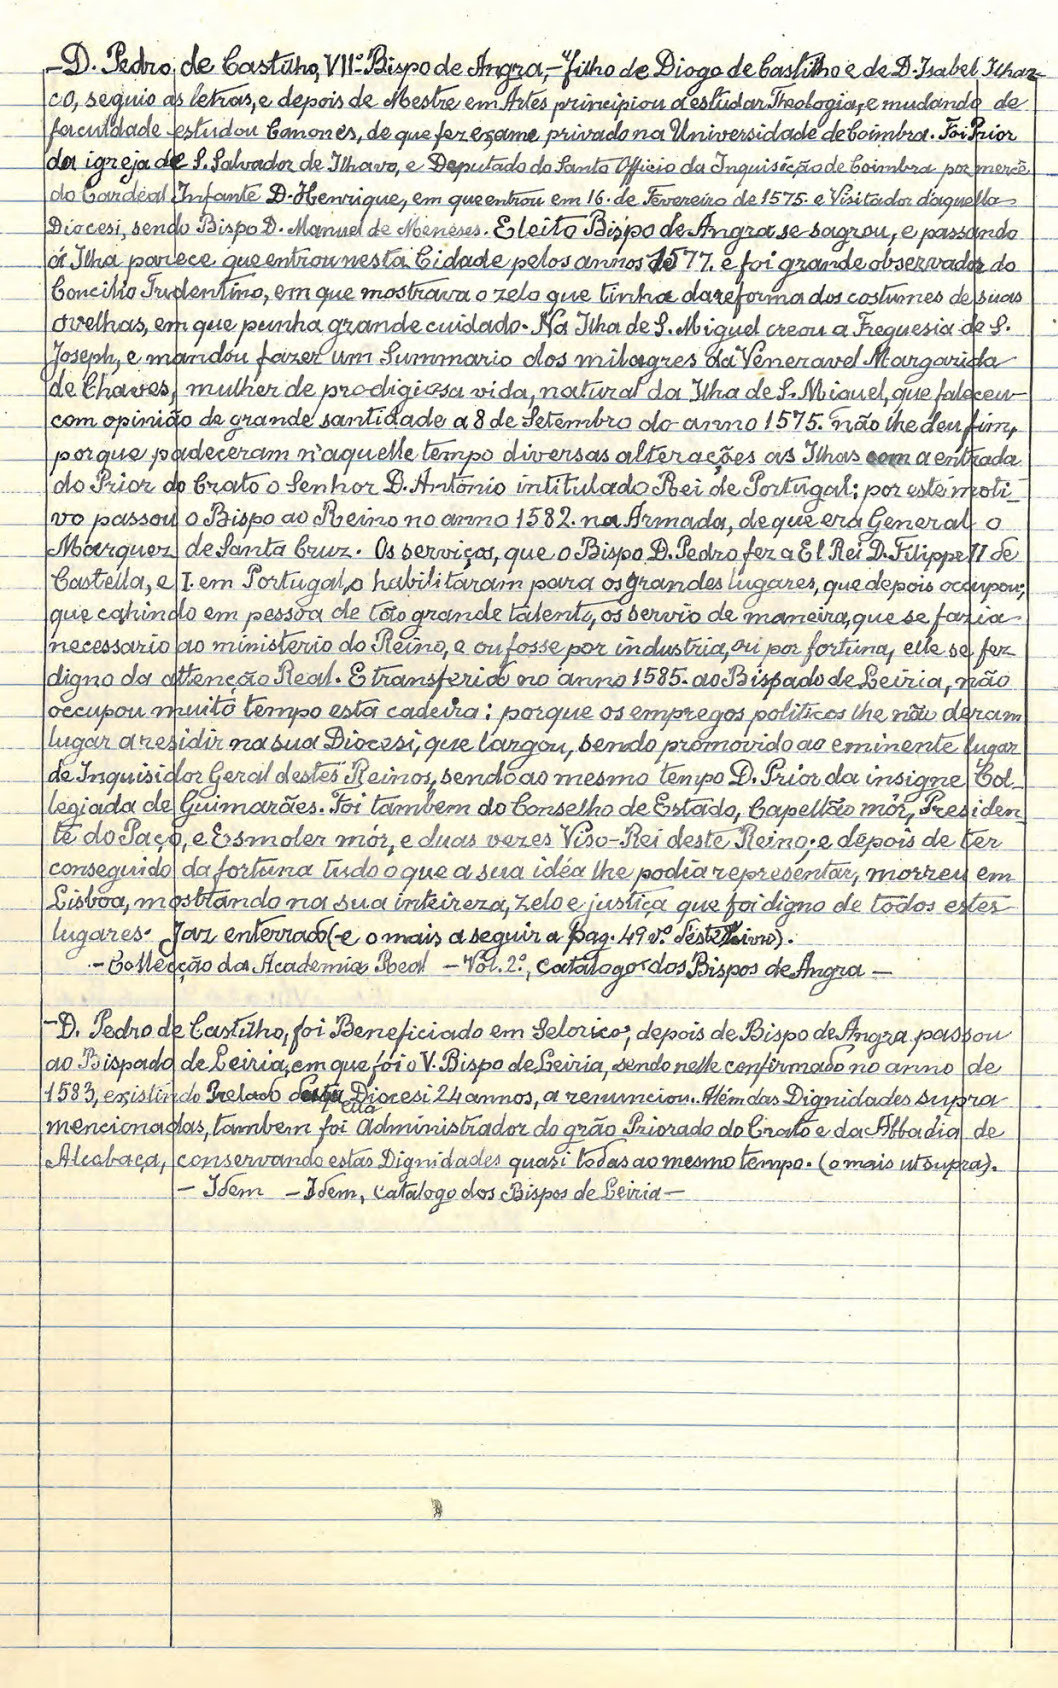 -D. Pedro de Castilho, VIIº. Bispo de Angra,- "filho de Diogo de Castilho e de D. Isabel Ilhar-
co, seguio as letras, e depois de Mestre em Artes principiou a estudar Theologia, e mudando de
faculdade estudou Canones, de que fez exame privado na Universidade de Coimbra. Foi Prior
da igreja de S. Salvador de Ilhavo, e Deputado do Santo Officio da Inquisição de Coimbra por mercê
do Cardeal Infante D. Henrique, em que entrou em 16. de Fevereiro de 1575. e Visitador d'aquella
Diocesi, sendo Bispo D. Manuel de Meneses. Eleito Bispo de Angra se sagrou, e passando
á Ilha parece que entrou nesta Cidade pelos annos 1577. e foi grande observador do
Concilio Tridentino, em que mostrava o zelo que tinha da reforma dos costumes de suas
ovelhas, em que punha grande cuidado. Na Ilha de S. Miguel creou a Freguesia de S.
Joseph, e mandou fazer um Summario dos milagres da Veneravel Margarida
de Chaves, mulher de prodigiosa vida, natural da Ilha de S. Miguel, que faleceu
com opinião de grande santidade a 8 de Setembro do anno 1575. não lhe deu fim,
porque padeceram n'aquelle tempo diversas alterações as Ilhas com a entrada
do Prior do Crato o Senhor D. António intitulado Rei de Portugal: por este moti-
vo passou o Bispo ao Reino no anno 1582. na Armada, de que era General o
Marquez de Santa Cruz. Os serviços, que o Bispo D. Pedro fez a El Rei D. Filippe II de
Castella, e I. em Portugal, o habilitaram para os grandes lugares, que depois occupou;
que cahindo em pessoa de tão grande talento, os servio de maneira, que se fazia
necessario ao ministerio do Reino, e ou fosse por industria, ou por fortuna, elle se fez
digno da attenção Real. E transferido no anno 1585. ao Bispado de Leiria, não
occupou muito tempo esta cadeira: porque os empregos politicos lhe não deram
lugar a residir na sua Diocesi, que largou, sendo promovido ao eminente lugar
de Inquisidor Geral destes Reinos, sendo ao mesmo tempo D. Prior da insigne Col-
legiada de Guimarães. Foi tambem do Conselho de Estado, Capellão mór, Presiden-
te do Paço, e Esmoler mór, e duas vezes Viso-Rei deste Reino; e depois de ter
conseguido da fortuna tudo o que a sua idéa lhe podia representar, morreu em
Lisboa, mostrando na sua inteireza, zelo e justiça que foi digno de todos estes
lugares. Jaz enterrado (-e o mais a seguir a pag. 49 vº. d'este livro).
- Collecção da Academia Real - Vol. 2º., Catálogo dos Bispos de Angra -
-D. Pedro de Castilho, foi Beneficiado em Selorico; depois de Bispo de Angra passou
ao Bispado de Leiria, em que foi o V. Bispo de Leiria, sendo nelle confirmado no anno de
1583, existindo Prelado desta Diocesi 24 annos, a renunciou. Além das Dignidades supra
mencionadas, tambem foi Administrador do grão Priorado do Crato e da Abbadia de
Alcobaça, conservando estas Dignidades quazi todas ao mesmo tempo. (o mais ut supra).
- Idem - Idem, catalogo dos Bispos de Leiria -